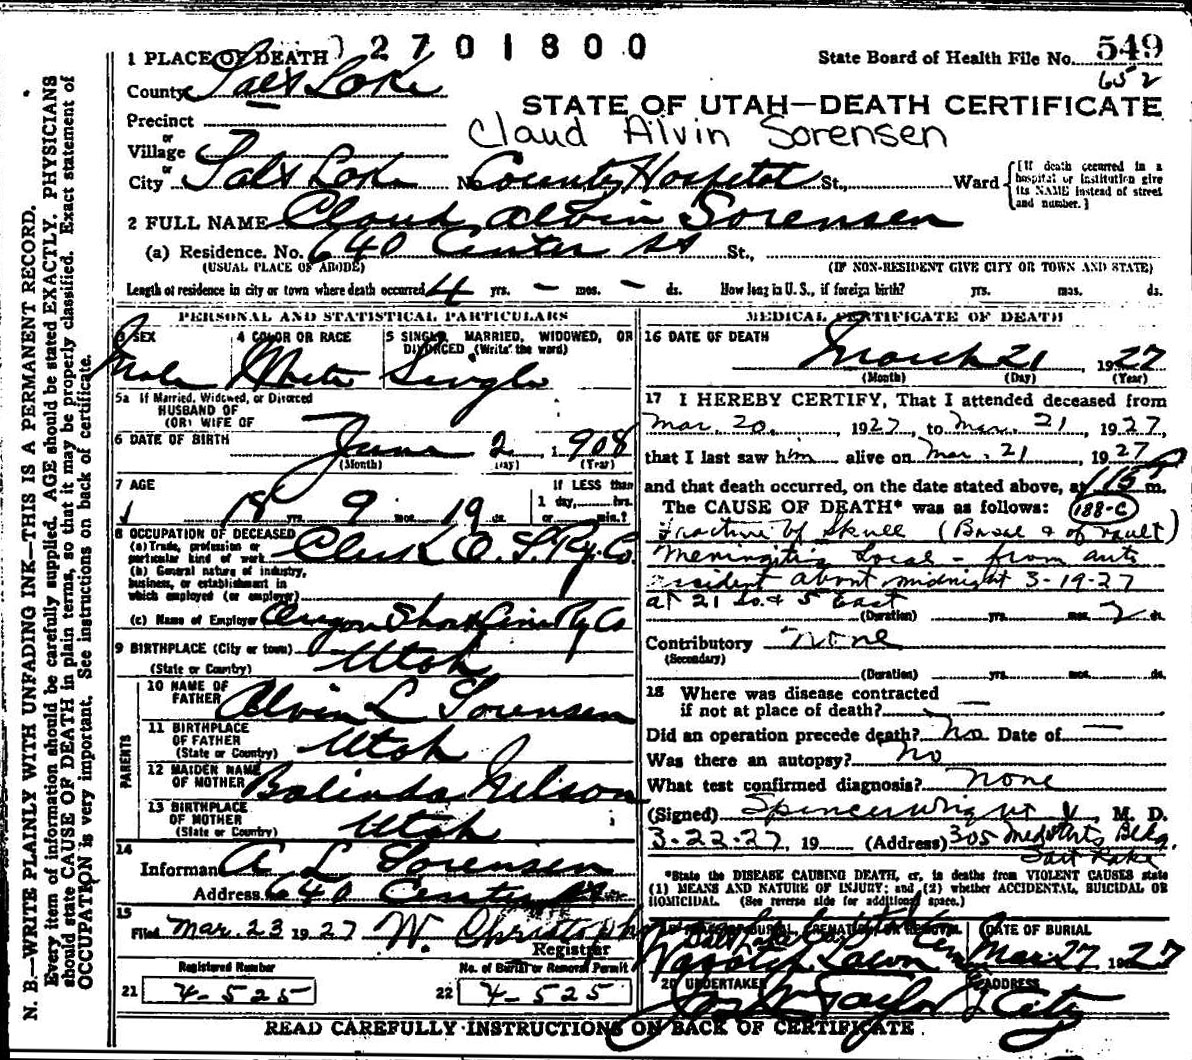 1 PLACE OF DEATH 2701800
State Board of Health File No. 549
652
County Salt Lake
STATE OF UTAH—DEATH CERTIFICATE
Precinct
Claud Alvin Sorensen
or
Village
or
City Salt Lake No. County Hospital St., Ward
[If death occurred in a
hospital or institution give
its NAME instead of street
and number.]
2 FULL NAME Claud Alvin Sorensen
(a) Residence. No. 640 Center St St.,
(USUAL PLACE OF ABODE) (IF NON-RESIDENT GIVE CITY OR TOWN AND STATE)
Length of residence in city or town where death occurred 4 yrs. — mos. — ds. How long in U. S., if foreign birth? yrs. mos. ds.
PERSONAL AND STATISTICAL PARTICULARS
3 SEX 4 COLOR OR RACE 5 SINGLE, MARRIED, WIDOWED, OR
DIVORCED (Write the word)
Male White Single
5a If Married, Widowed, or Divorced
HUSBAND OF
(OR) WIFE OF
6 DATE OF BIRTH June 2 1908
(Month) (Day) (Year)
7 AGE If LESS than
1 day, hrs.
18 yrs. 9 mos. 19 ds. or min.?
8 OCCUPATION OF DECEASED
(a) Trade, profession or
particular kind of work Clerk O. S. Ry. Co.
(b) General nature of industry,
business, or establishment in
which employed (or employer)
(c) Name of Employer Oregon Short Line Ry Co
9 BIRTHPLACE (City or town)
(State or Country) Utah
PARENTS
10 NAME OF
FATHER Alvin L Sorensen
11 BIRTHPLACE
OF FATHER
(State or Country) Utah
12 MAIDEN NAME
OF MOTHER Balinda Nilson
13 BIRTHPLACE
OF MOTHER
(State or Country) Utah
14
Informant A L Sorensen
Address 640 Center St
15
Filed Mar. 23 1927 W. Christoph
Registrar
Registered Number No. of Burial or Removal Permit
21 4-525 22 4-525
MEDICAL CERTIFICATE OF DEATH
16 DATE OF DEATH
March 21 1927
(Month) (Day) (Year)
17 I HEREBY CERTIFY, That I attended deceased from
Mar. 20, 1927, to Mar. 21, 1927,
that I last saw him alive on Mar. 21 1927
and that death occurred, on the date stated above, at 115 m.
The CAUSE OF DEATH* was as follows: 188-C
Fracture of Skull (Basal & of vault)
Meningitis Local - from auto
accident about midnight 3-19-27
at 21 So. & 5 East
(Duration) yrs. mos. 2 ds.
Contributory none
(Secondary)
(Duration) yrs. mos. ds.
18 Where was disease contracted
if not at place of death? —
Did an operation precede death? No Date of —
Was there an autopsy? No
What test confirmed diagnosis? none
(Signed) Spencer Wright, M. D.
3-22-27, 19 (Address) 305 Med Arts Bldg.
Salt Lake
*State the DISEASE CAUSING DEATH, or, in deaths from VIOLENT CAUSES state
(1) MEANS AND NATURE OF INJURY; and (2) whether ACCIDENTAL, SUICIDAL OR
HOMICIDAL. (See reverse side for additional space.)
19 PLACE OF BURIAL, CREMATION OR REMOVAL DATE OF BURIAL
Wasatch Lawn Mar 27 1927
20 UNDERTAKER ADDRESS
Jos Wm Taylor City
READ CAREFULLY INSTRUCTIONS ON BACK OF CERTIFICATE.
N. B.—WRITE PLAINLY WITH UNFADING INK—THIS IS A PERMANENT RECORD.
Every item of information should be carefully supplied. AGE should be stated EXACTLY. PHYSICIANS
should state CAUSE OF DEATH in plain terms, so that it may be properly classified. Exact statement of
OCCUPATION is very important. See instructions on back of certificate.